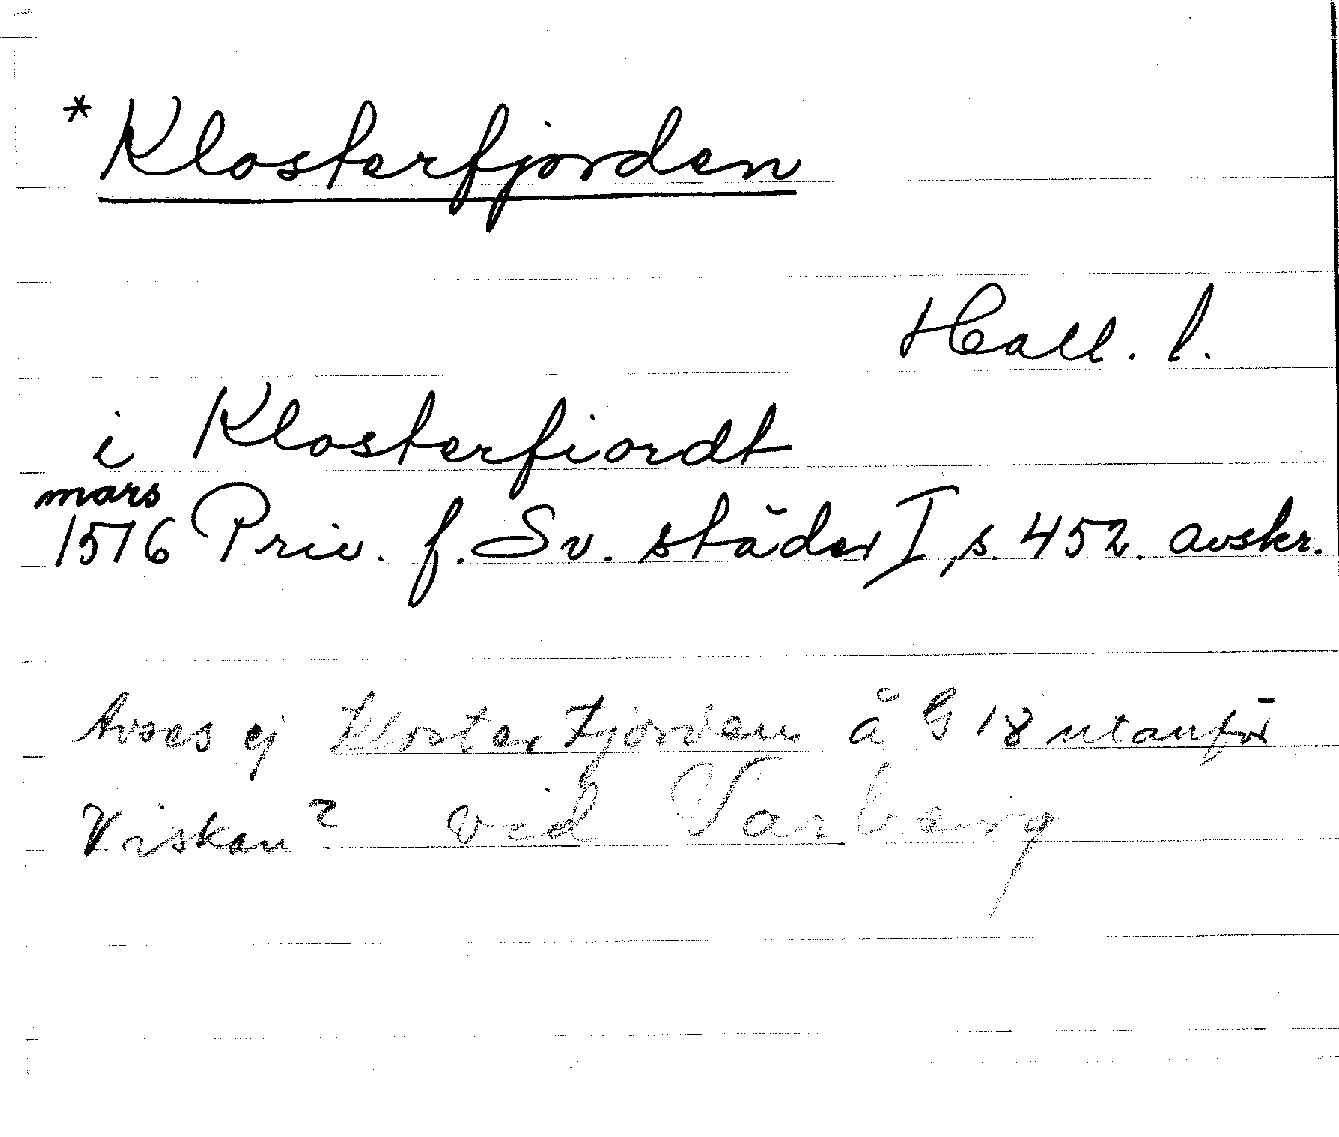 *Klosterfjorden
Hall. l.
i Klosterfiordt
mars
1576 Priv. f. Sv. städer I, s. 452. avskr.
Avses ej Klosterfjorden å G 18 utanför
Viskan? vid Varberg